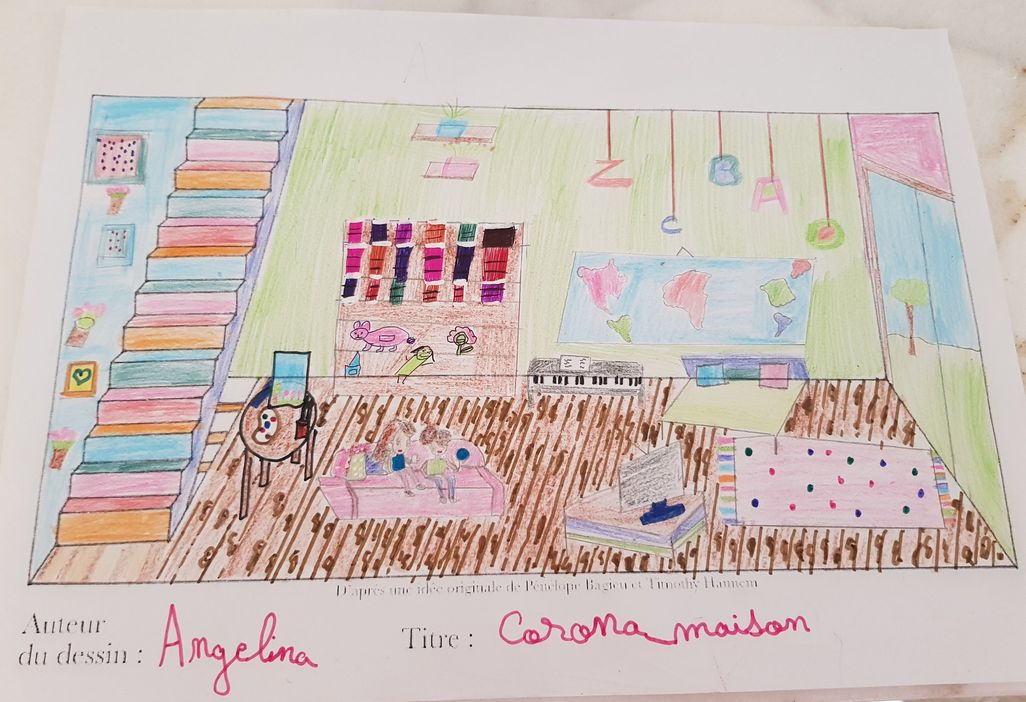 Z C B A O
D'après une idée originale de Pénélope Bagieu et Timothy Hannem
Auteur
du dessin : Angelina
Titre : Corona maison